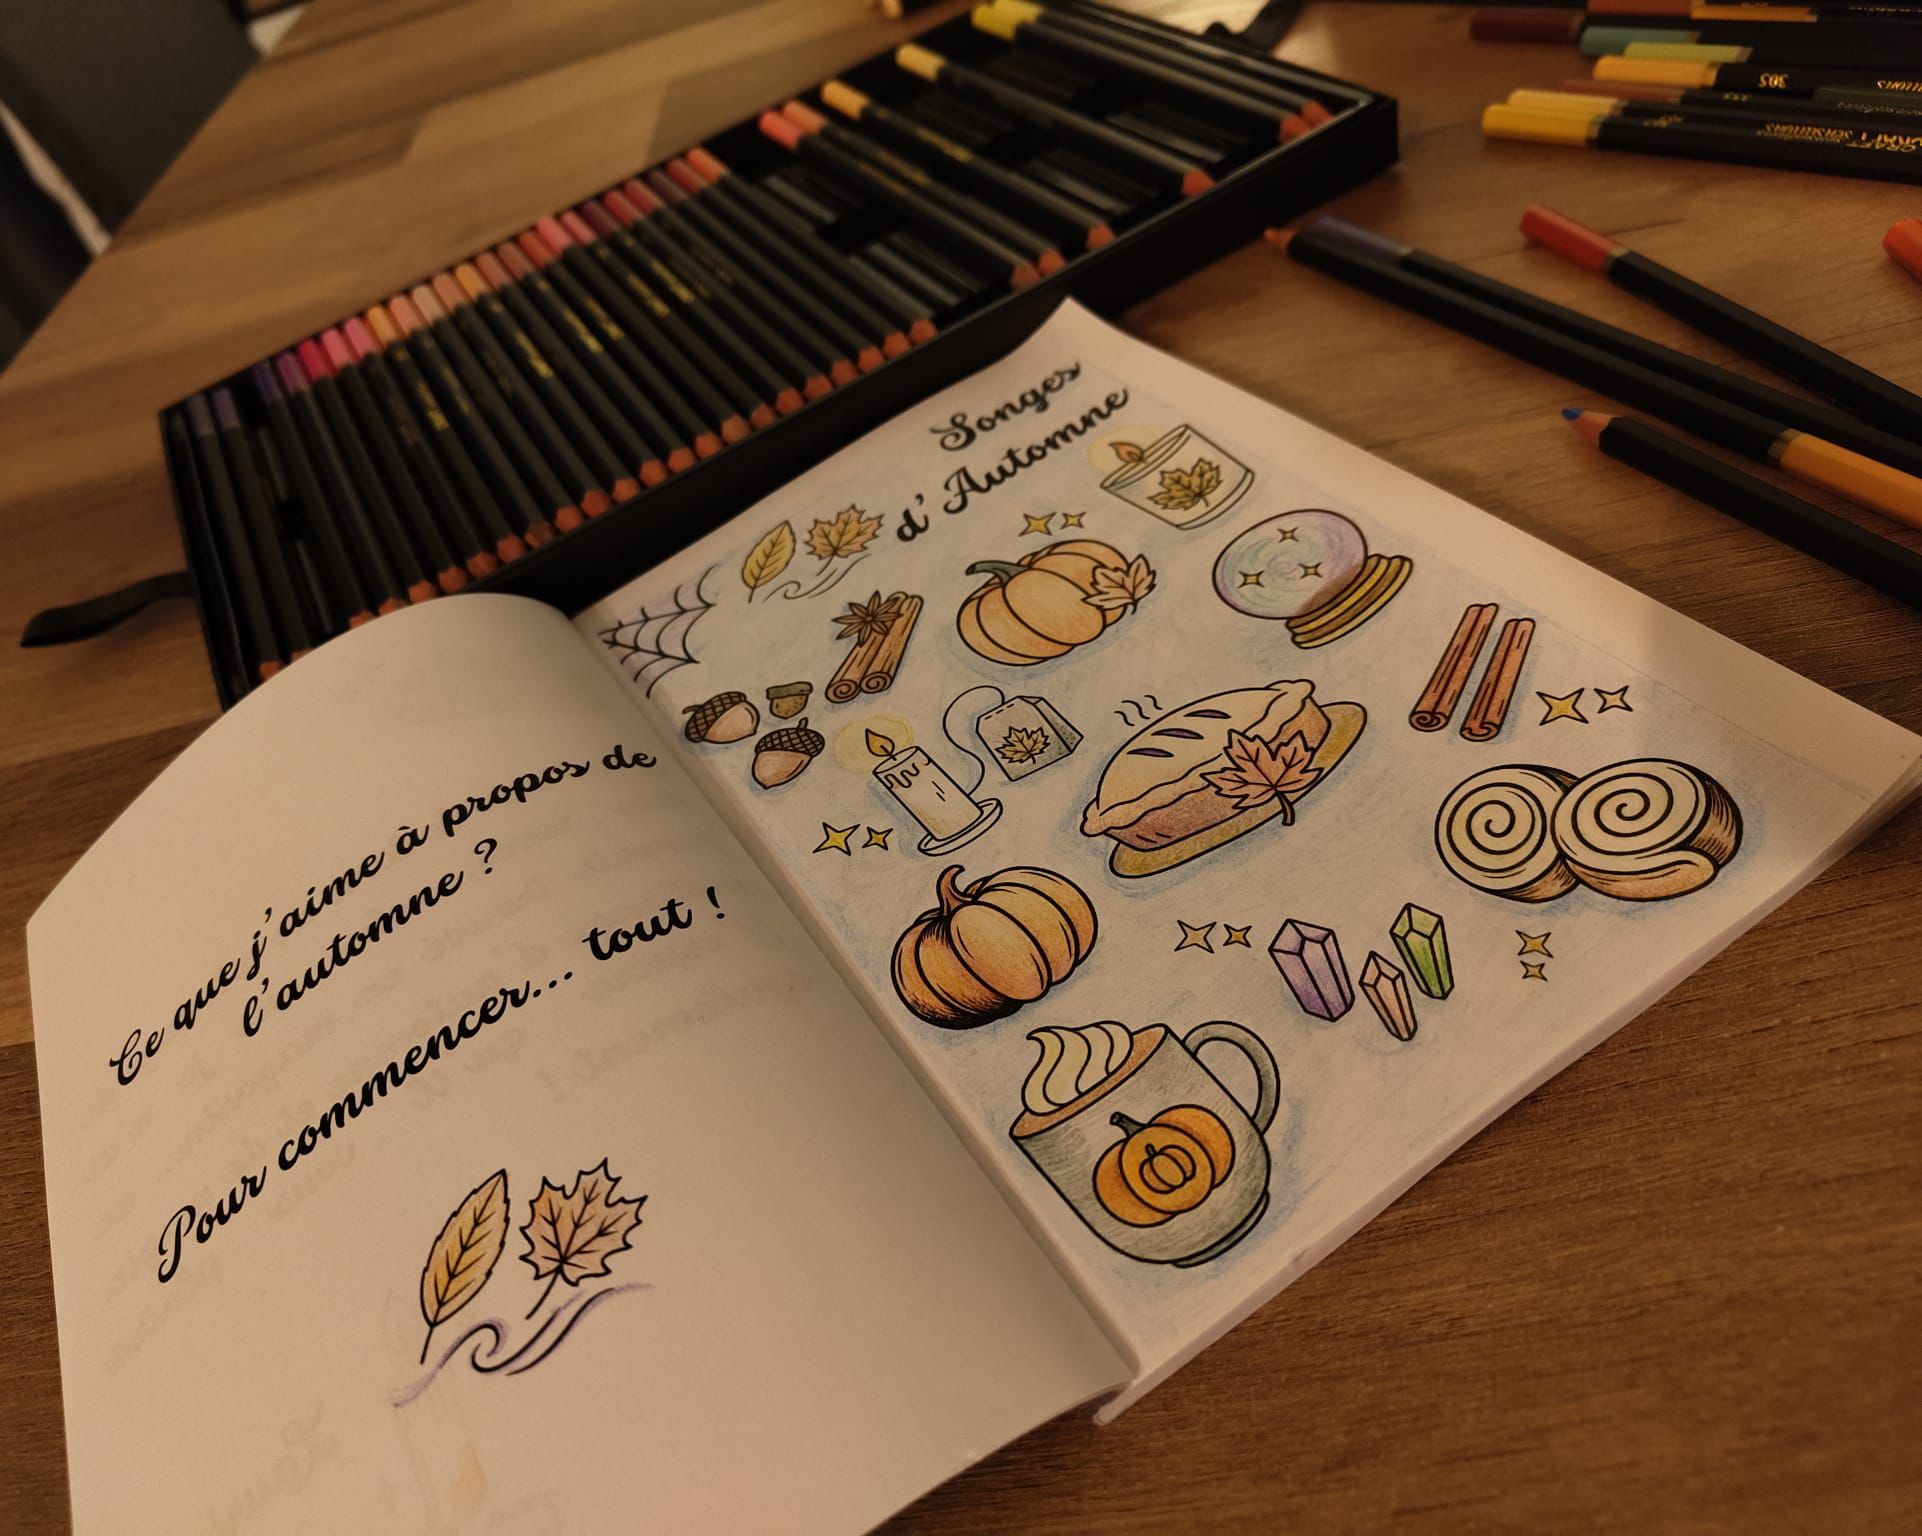 Ce que j'aime à propos de
l'automne ?
Pour commencer... tout !
Songes
d'Automne
305
CRAFT SENSATIONS